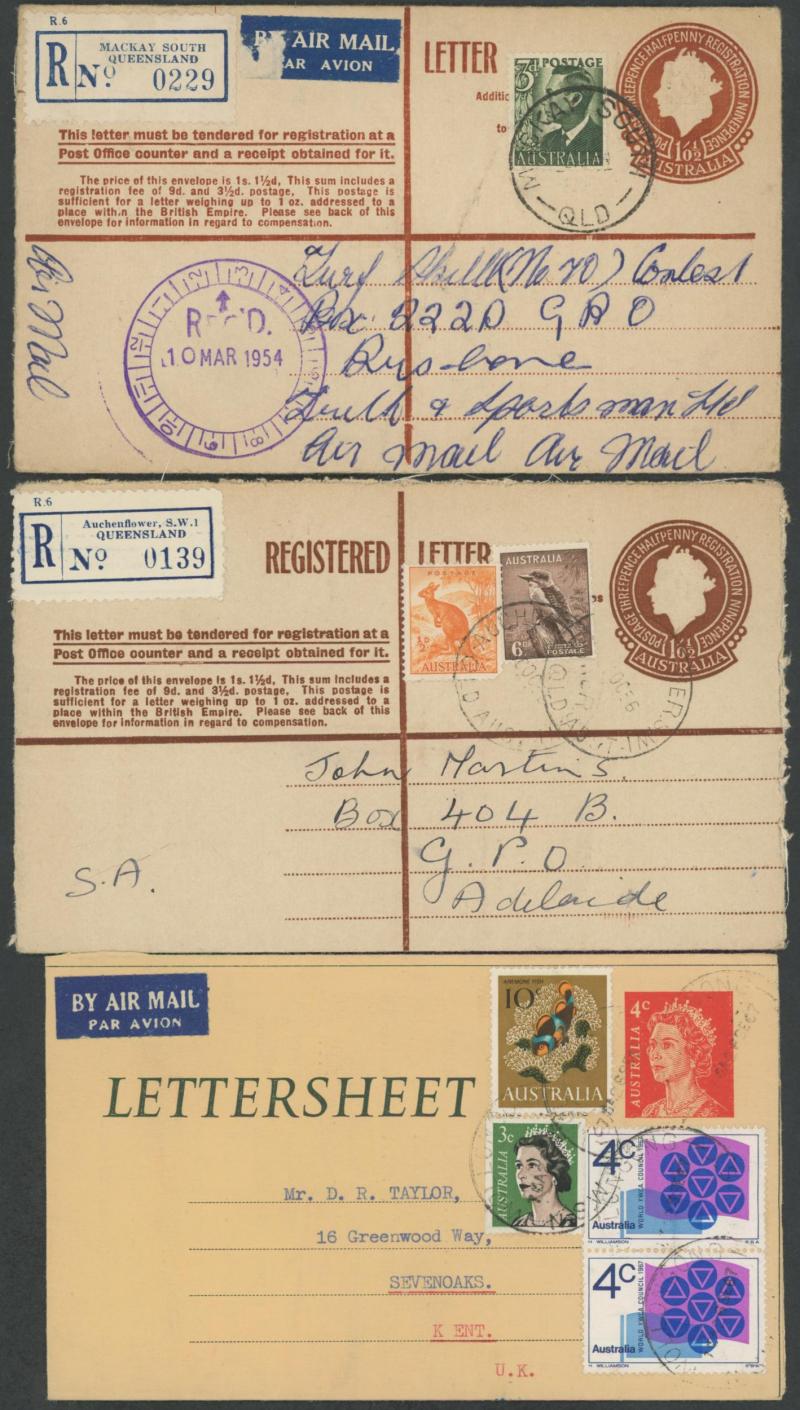 R.6
R No. 0229
MACKAY SOUTH
QUEENSLAND
BY AIR MAIL
PAR AVION
LETTER
3d POSTAGE
AUSTRALIA
POSTAGE THREEPENCE HALFPENNY REGISTRATION NINEPENCE
1/0½
AUSTRALIA
Additic
to
MACKAY SOUTH
QLD
This letter must be tendered for registration at a
Post Office counter and a receipt obtained for it.
The price of this envelope is 1s. 1½d. This sum includes a
registration fee of 9d. and 3½d. postage. This postage is
sufficient for a letter weighing up to 1 oz. addressed to a
place within the British Empire. Please see back of this
envelope for information in regard to compensation.
Air Mail
REC'D.
10 MAR 1954
Turf Skill (No 20) Contest
Box 222D G P O
Brisbane
Truth & Sportsman Ltd
Air Mail Air Mail
R.6
R No. 0139
Auchenflower, S.W.1
QUEENSLAND
REGISTERED LETTER
POSTAGE
½D
AUSTRALIA
AUSTRALIA
6D
POSTAGE
POSTAGE THREEPENCE HALFPENNY REGISTRATION NINEPENCE
1/0½
AUSTRALIA
This letter must be tendered for registration at a
Post Office counter and a receipt obtained for it.
The price of this envelope is 1s. 1½d. This sum includes a
registration fee of 9d. and 3½d. postage. This postage is
sufficient for a letter weighing up to 1 oz. addressed to a
place within the British Empire. Please see back of this
envelope for information in regard to compensation.
John Martins.
Box 404 B.
G. P. O.
Adelaide
S.A.
BY AIR MAIL
PAR AVION
LETTERSHEET
ANEMONE FISH
10c
AUSTRALIA
4c
AUSTRALIA
3c
AUSTRALIA
4c
Australia
WORLD YWCA COUNCIL 1967
H. WILLIAMSON R.B.A.
4c
Australia
WORLD YWCA COUNCIL 1967
H. WILLIAMSON R.B.A.
Mr. D. R. TAYLOR,
16 Greenwood Way,
SEVENOAKS.
K ENT.
U.K.